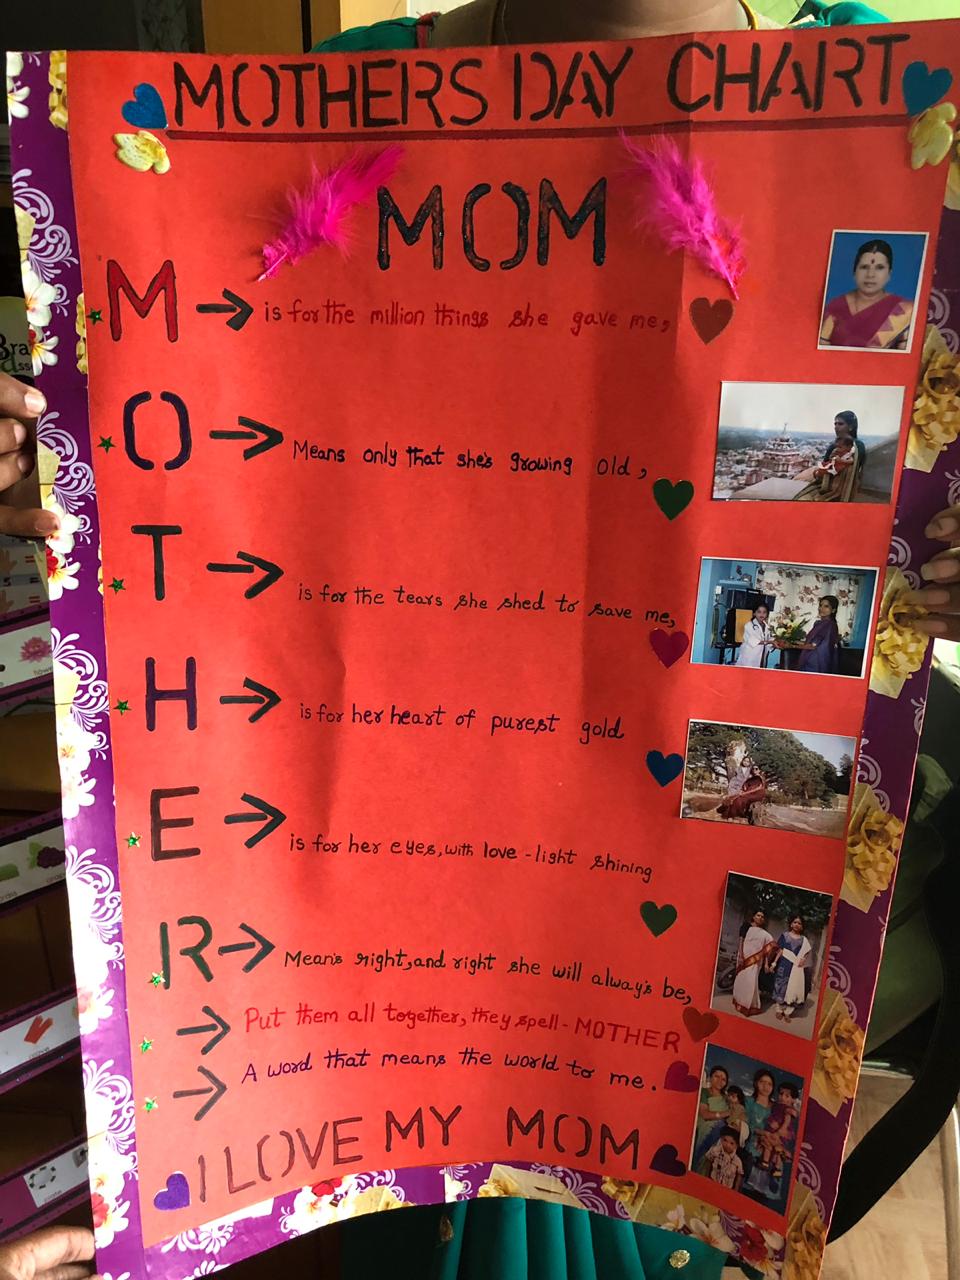 MOTHERS DAY CHART
MOM
M → is for the million things she gave me,
O → Means only that she's growing old,
T → is for the tears she shed to save me,
H → is for her heart of purest gold
E → is for her eyes, with love-light shining
R → Means right, and right she will always be,
→ Put them all together, they spell - MOTHER
→ A word that means the world to me.
I LOVE MY MOM